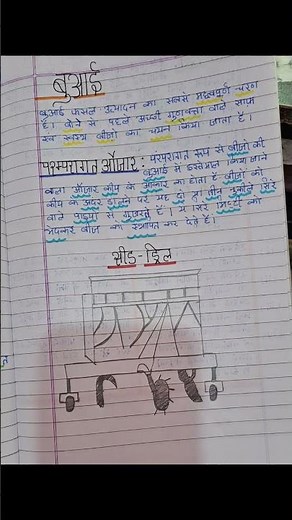 बुआई
बुआई फसल उत्पादन का सबसे महत्वपूर्ण चरण
है। बोने से पहले अच्छी गुणवत्ता वाले साफ़
एवं स्वस्थ बीजों का चयन किया जाता है।
परम्परागत औजार : परंपरागत रूप से बीजों की
बुआई में इस्तेमाल किया जाने
वाला औजार कीप के आकार का होता है बीजों को
कीप के अंदर डालने पर यह दो या तीन नुकीले सिरे
वाले पाइपों से गुजरते हैं। ये सिरे मिट्टी को
भेदकर बीज का स्थापित कर देते हैं।
सीड-ड्रिल